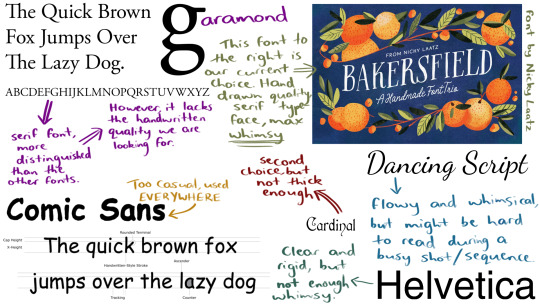 The Quick Brown
Fox Jumps Over
The Lazy Dog.
ABCDEFGHIJKLMNOPQRSTUVWXYZ
garamond
serif font,
more
distinguished
than the
other fonts.
However, it lacks
the handwritten
quality we are
looking for.
This font to
the right is
our current
choice. Hand
drawn quality,
serif type
face, max
whimsy
FROM NICKY LAATZ
BAKERSFIELD
A Handmade Font Trio
font by Nicky Laatz
Too casual, used
EVERYWHERE
Comic Sans
Rounded Terminal
Cap Height
X-Height
The quick brown fox
Handwritten Style Stroke
Ascender
jumps over the lazy dog
Tracking
Counter
second
choice, but
not thick
enough
Cardinal
Dancing Script
flowy and whimsical,
but might be hard
to read during a
busy shot/sequence
Clear and
rigid, but
not enough
whimsy.
Helvetica